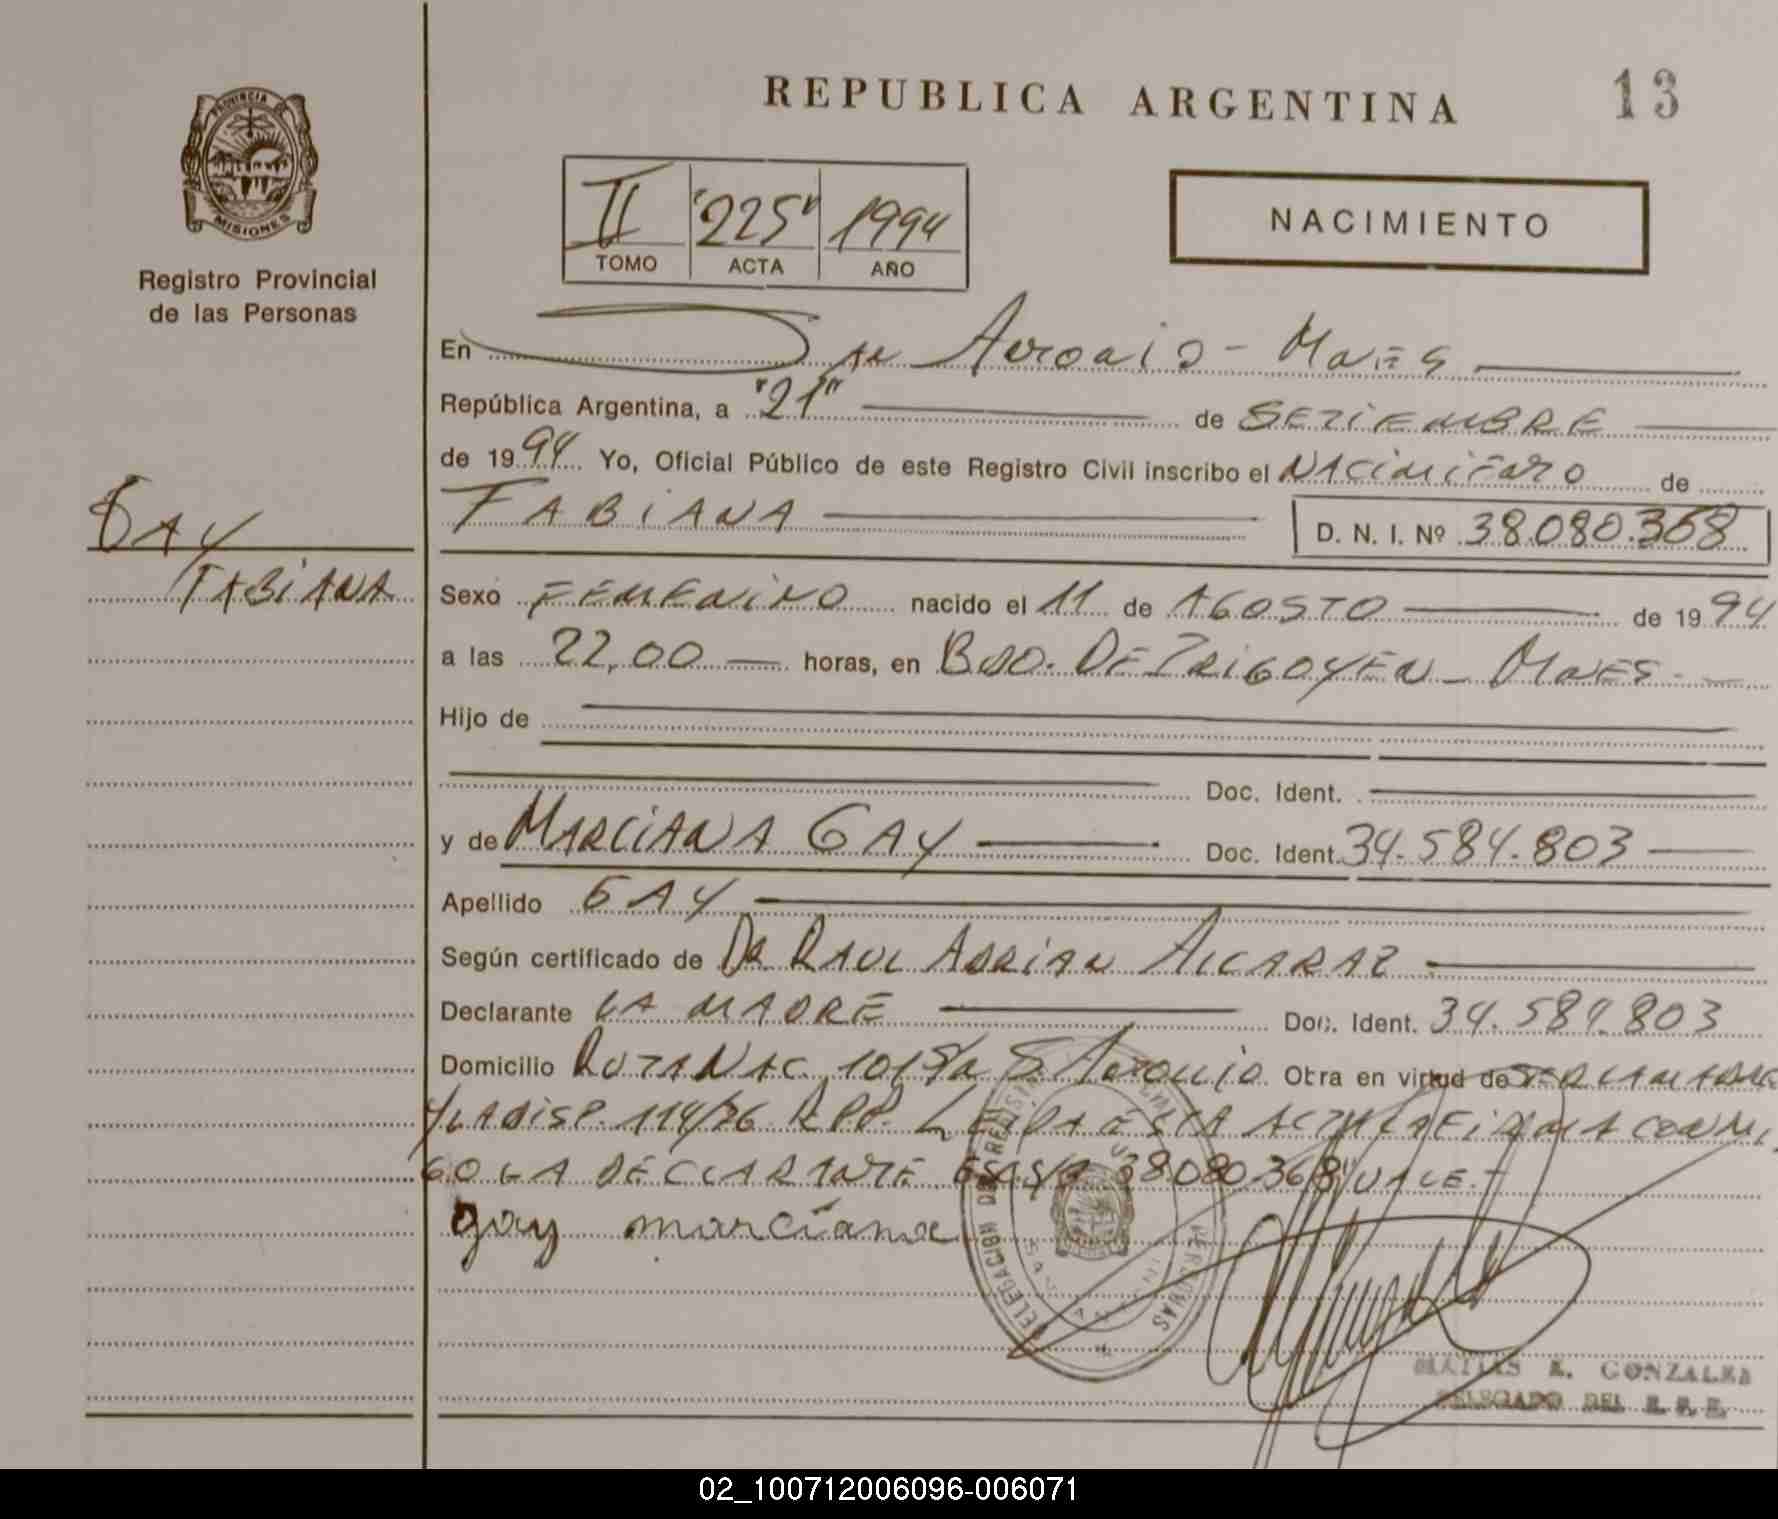 REPUBLICA ARGENTINA
13
PROVINCIA DE
MISIONES
Registro Provincial
de las Personas
II "225" 1994
TOMO ACTA AÑO
NACIMIENTO
GAY
FABIANA
En San Antonio - Mnes
República Argentina, a "21" de SETIEMBRE
de 1994 Yo, Oficial Público de este Registro Civil inscribo el NACIMIENTO de
FABIANA
D. N. I. Nº 38.080.368
Sexo FEMENINO nacido el 11 de AGOSTO de 1994
a las 22,00 horas, en BDO. DE IRIGOYEN - MNES -
Hijo de
Doc. Ident.
y de MARCIANA GAY Doc. Ident. 34.584.803
Apellido GAY
Según certificado de DR RAUL ADRIAN ALCARAZ
Declarante LA MADRE Doc. Ident. 34.584.803
Domicilio RUTA NAC. 101 S/N S. Antonio Otra en virtud de SER LA MADRE
Y LA DISP. 114/76 R.P.P. LEIDA ESTA ACTA LA FIRMA CONMI
GO LA DECLARANTE 38.080.368 VALE.-
gay marciana
DELEGACION DEL REGISTRO PERSONAS
MATIAS E. GONZALEZ
DELEGADO DEL R. P. P.
02_100712006096-006071